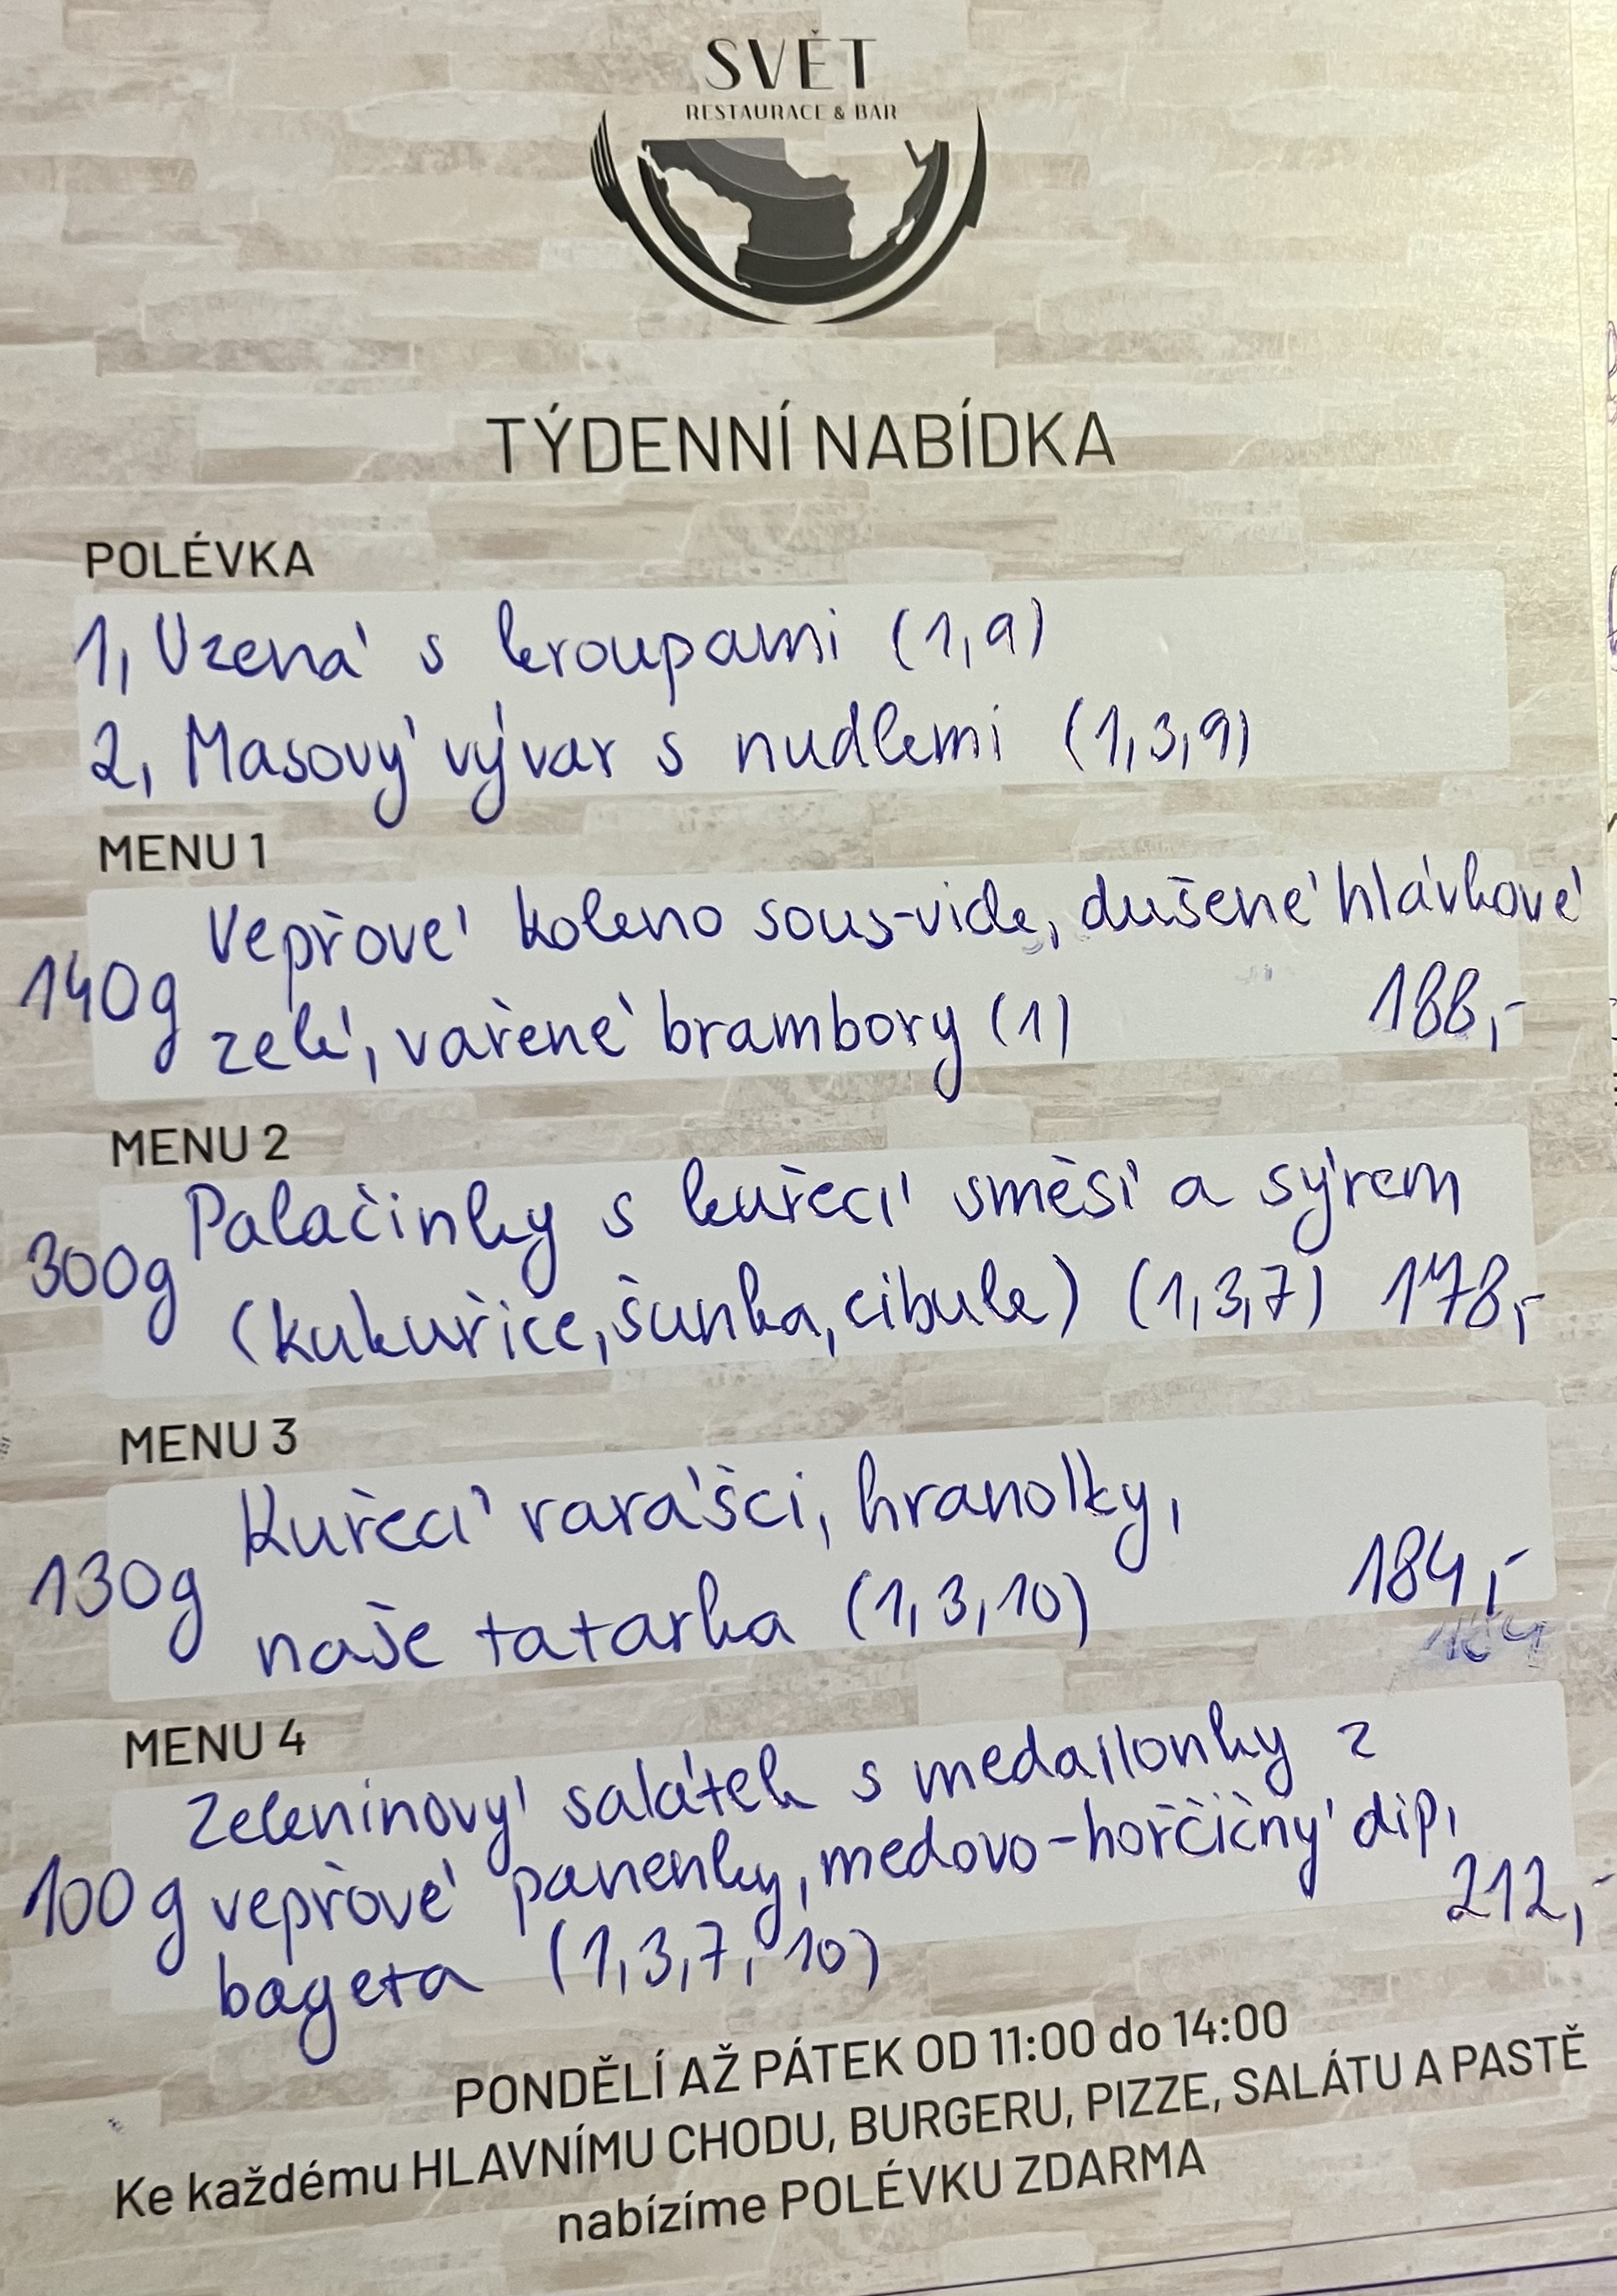 SVĚT
RESTAURACE & BAR
TÝDENNÍ NABÍDKA
POLÉVKA
1, Uzená s kroupami (1,9)
2, Masový vývar s nudlemi (1,3,9)
MENU 1
Vepřové koleno sous-vide, dušené hlávkové
140g zelí, vařené brambory (1) 188,-
MENU 2
Palačinky s kuřecí směsí a sýrem
300g (kukuřice, šunka, cibule) (1,3,7) 178,-
MENU 3
Kuřecí rarášci, hranolky,
130g naše tatarka (1,3,10) 184,-
MENU 4
Zeleninový salátek s medailonky z
100g vepřové panenky, medovo-hořčičný dip, 212,-
bageta (1,3,7,10)
PONDĚLÍ AŽ PÁTEK OD 11:00 do 14:00
Ke každému HLAVNÍMU CHODU, BURGERU, PIZZE, SALÁTU A PASTĚ
nabízíme POLÉVKU ZDARMA